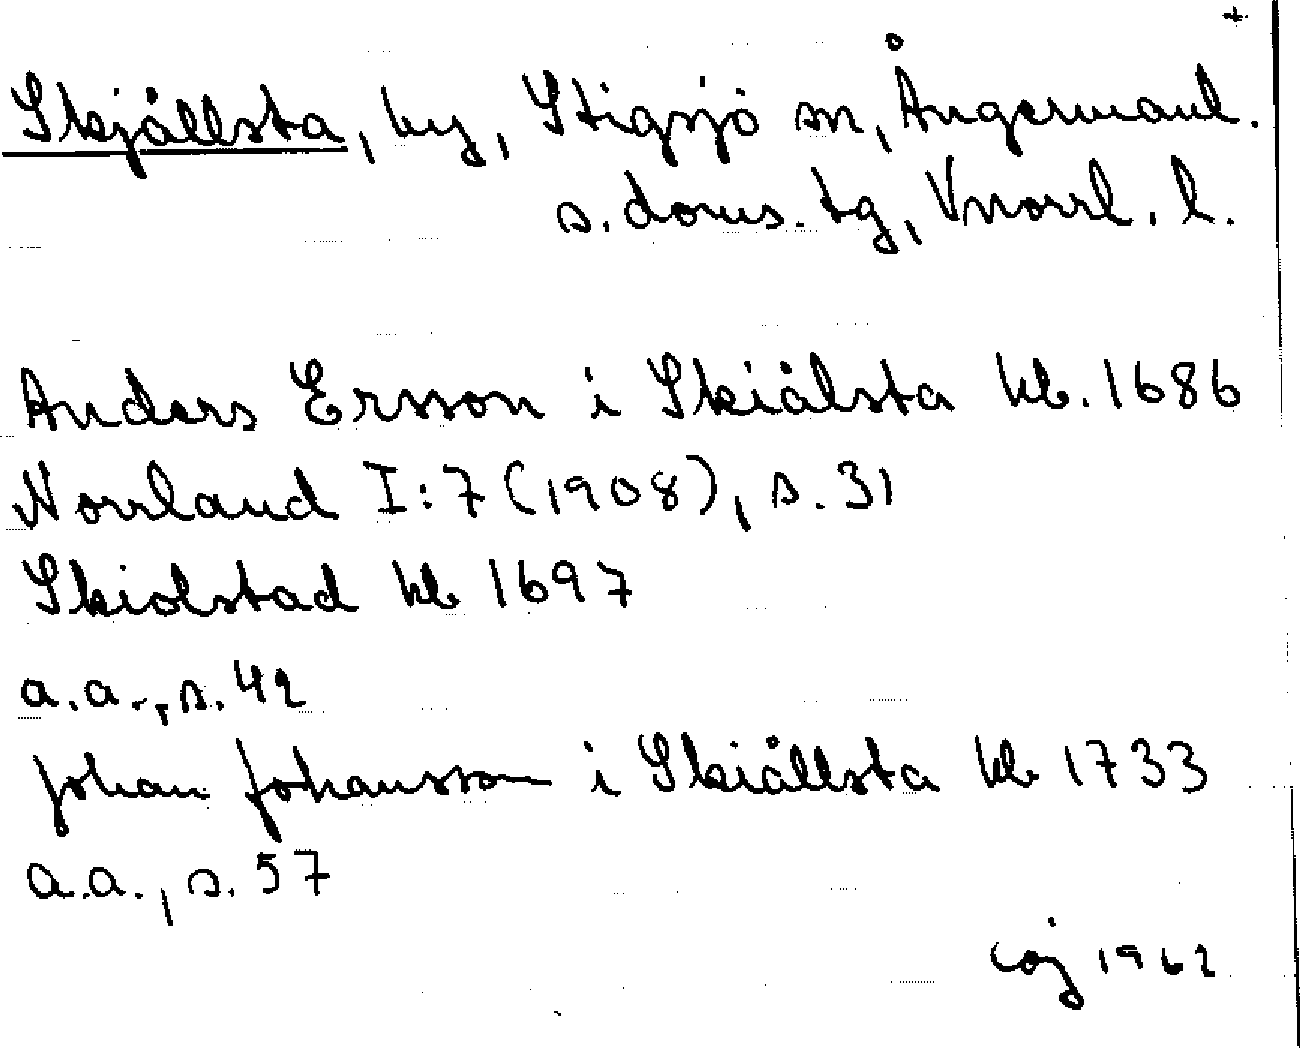 +
Skjällsta, by, Stigsjö sn, Ångermanl.
s. doms. tg, Vnorrl. l.
Anders Ersson i Skiälsta kb. 1686
Norrland I:7 (1908), s. 31
Skiolstad kb 1697
a.a., s. 42
Johan Johansson i Skiällsta kb 1733
a.a., s. 57
coj 1962